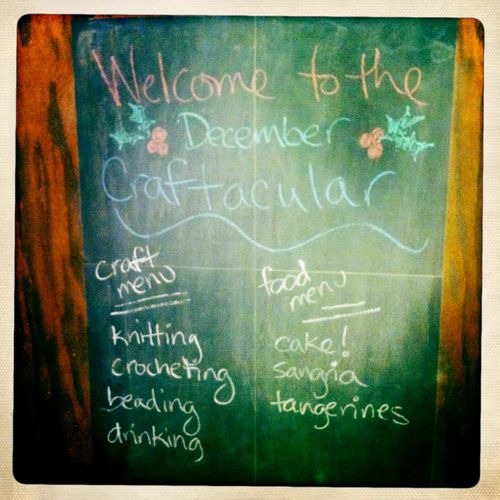 Welcome to the
December
Craftacular
craft
menu
knitting
crocheting
beading
drinking
food
menu
cake!
sangia
tangerines